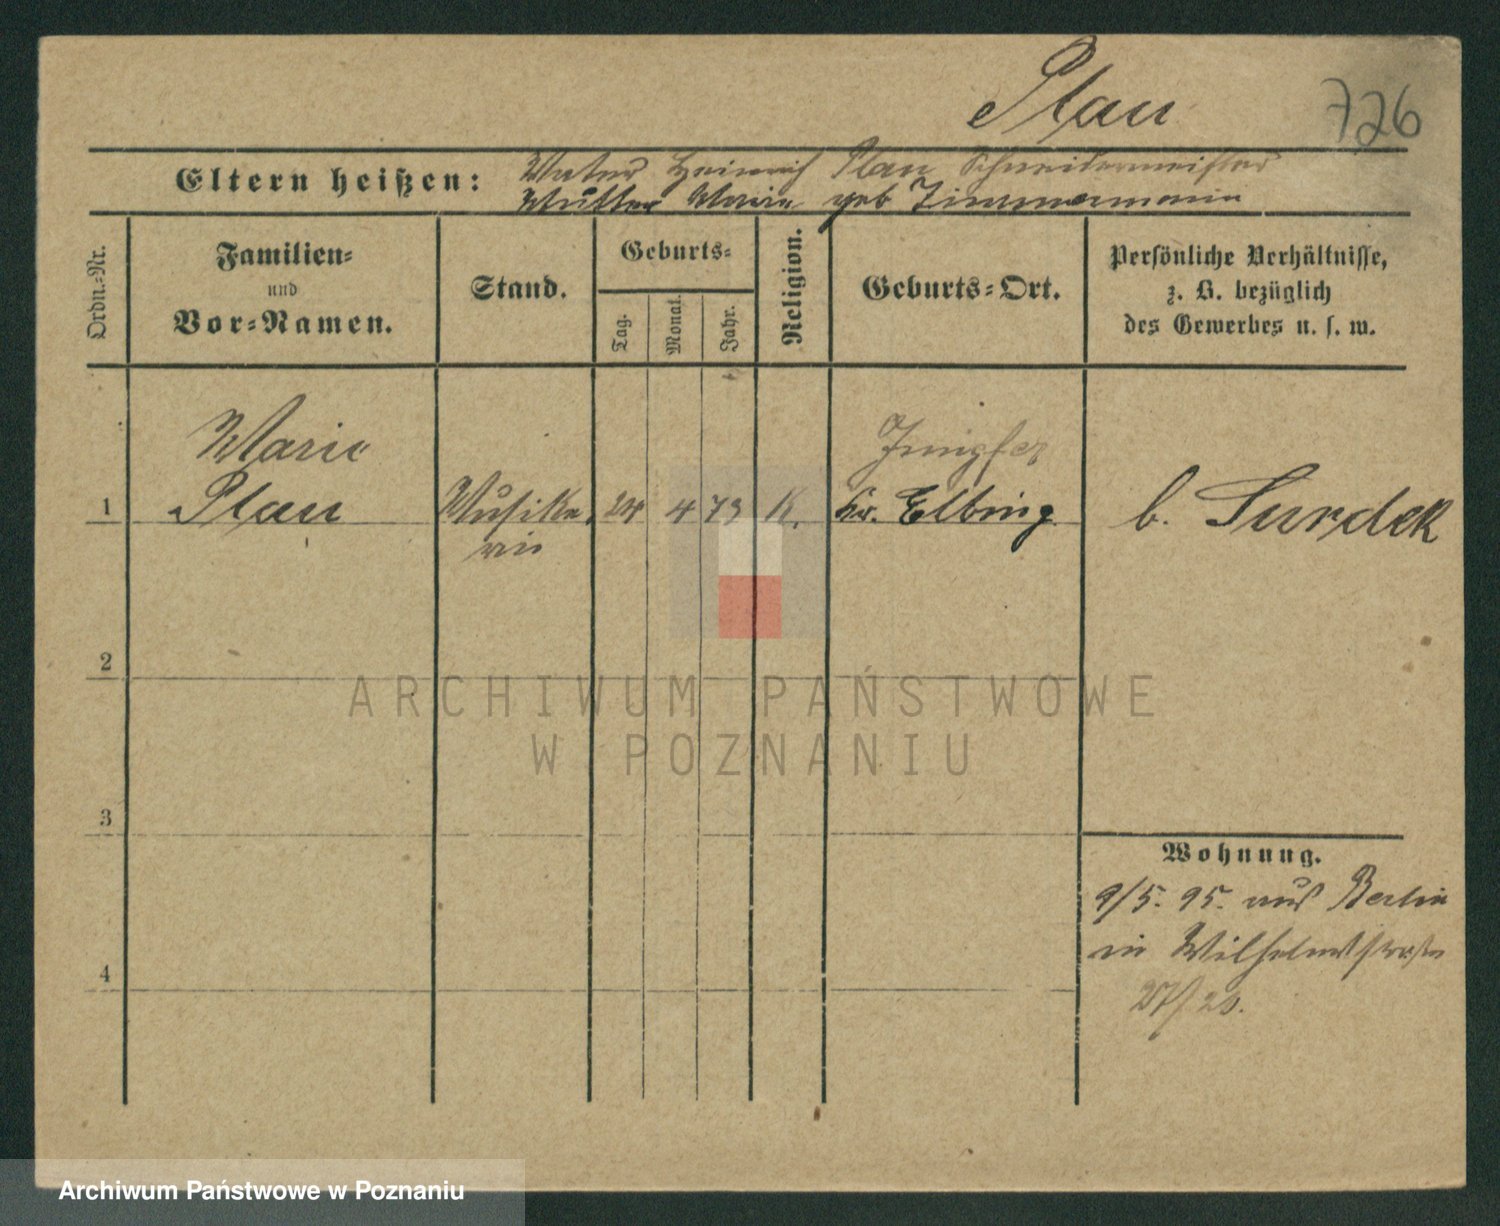 Plau
726
Eltern heißen: Vater Heinrich Plau Schneidermeister
Mutter Marie geb Zimmermann
Ordn.-Nr.
Familien-
und
Vor-Namen.
Stand.
Geburts-
Tag.
Monat.
Jahr.
Religion.
Geburts-Ort.
Persönliche Verhältnisse,
z. B. bezüglich
des Gewerbes u. s. w.
Marie
Plau
1
Musike.
rin
24 4 73 K.
Jungfer
Kr. Elbing
b. Surdek
2
ARCHIWUM PAŃSTWOWE
W POZNANIU
3
4
Wohnung.
9/5. 95. aus Berlin
in Wilhelmstraße
Archiwum Państwowe w Poznaniu